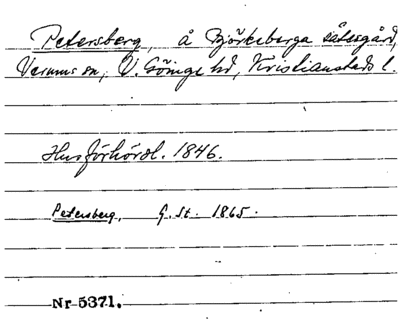 Petersberg, å Björkeberga sätesgård,
Verums sn, V. Göinge hd, Kristianstads l.
Husförhörsl. 1846.
Petersberg. G. St. 1865.
Nr 5371.